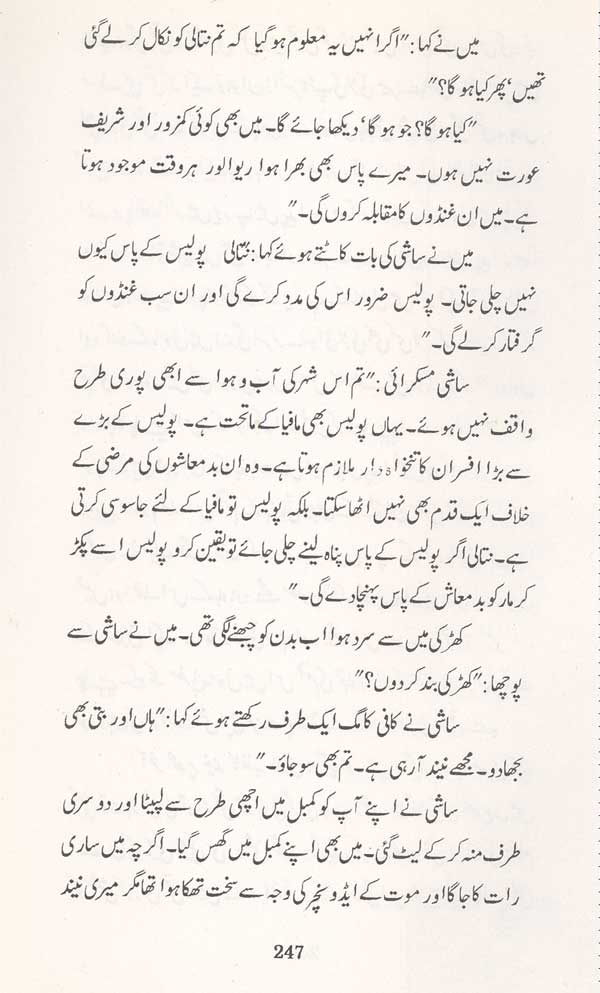 میں نے کہا : ”اگر انہیں یہ معلوم ہو گیا کہ تم نتالی کو نکال کر لے گئی
تھیں‘ پھر کیا ہو گا؟“
”کیا ہو گا؟ جو ہو گا‘ دیکھا جائے گا۔ میں بھی کوئی کمزور اور شریف
عورت نہیں ہوں۔ میرے پاس بھی بھرا ہوا ریوالور ہر وقت موجود ہوتا
ہے۔ میں ان غنڈوں کا مقابلہ کروں گی۔“
میں نے ساشی کی بات کاٹتے ہوئے کہا : ”نتالی پولیس کے پاس کیوں
نہیں چلی جاتی۔ پولیس ضرور اس کی مدد کرے گی اور ان سب غنڈوں کو
گرفتار کر لے گی۔“
ساشی مسکرائی : ”تم اس شہر کی آب و ہوا سے ابھی پوری طرح
واقف نہیں ہوئے۔ یہاں پولیس بھی مافیا کے ماتحت ہے۔ پولیس کے بڑے
سے بڑا افسر ان کا تنخواہ دار ملازم ہوتا ہے۔ وہ ان بدمعاشوں کی مرضی کے
خلاف ایک قدم بھی نہیں اٹھا سکتا۔ بلکہ پولیس تو مافیا کے لئے جاسوسی کرتی
ہے۔ نتالی اگر پولیس کے پاس پناہ لینے چلی جائے تو یقین کرو پولیس اسے پکڑ
کر مارکو بدمعاش کے پاس پہنچا دے گی۔“
کھڑکی میں سے سرد ہوا اب بدن کو چبھنے لگی تھی۔ میں نے ساشی سے
پوچھا : ”کھڑکی بند کر دوں؟“
ساشی نے کافی کا مگ ایک طرف رکھتے ہوئے کہا : ”ہاں اور بتی بھی
بجھا دو۔ مجھے نیند آ رہی ہے۔ تم بھی سو جاؤ۔“
ساشی نے اپنے آپ کو کمبل میں اچھی طرح سے لپیٹا اور دوسری
طرف منہ کر کے لیٹ گئی۔ میں بھی اپنے کمبل میں گھس گیا۔ اگرچہ میں ساری
رات کا جاگا اور موت کے ایڈونچر کی وجہ سے سخت تھکا ہوا تھا مگر میری نیند
247